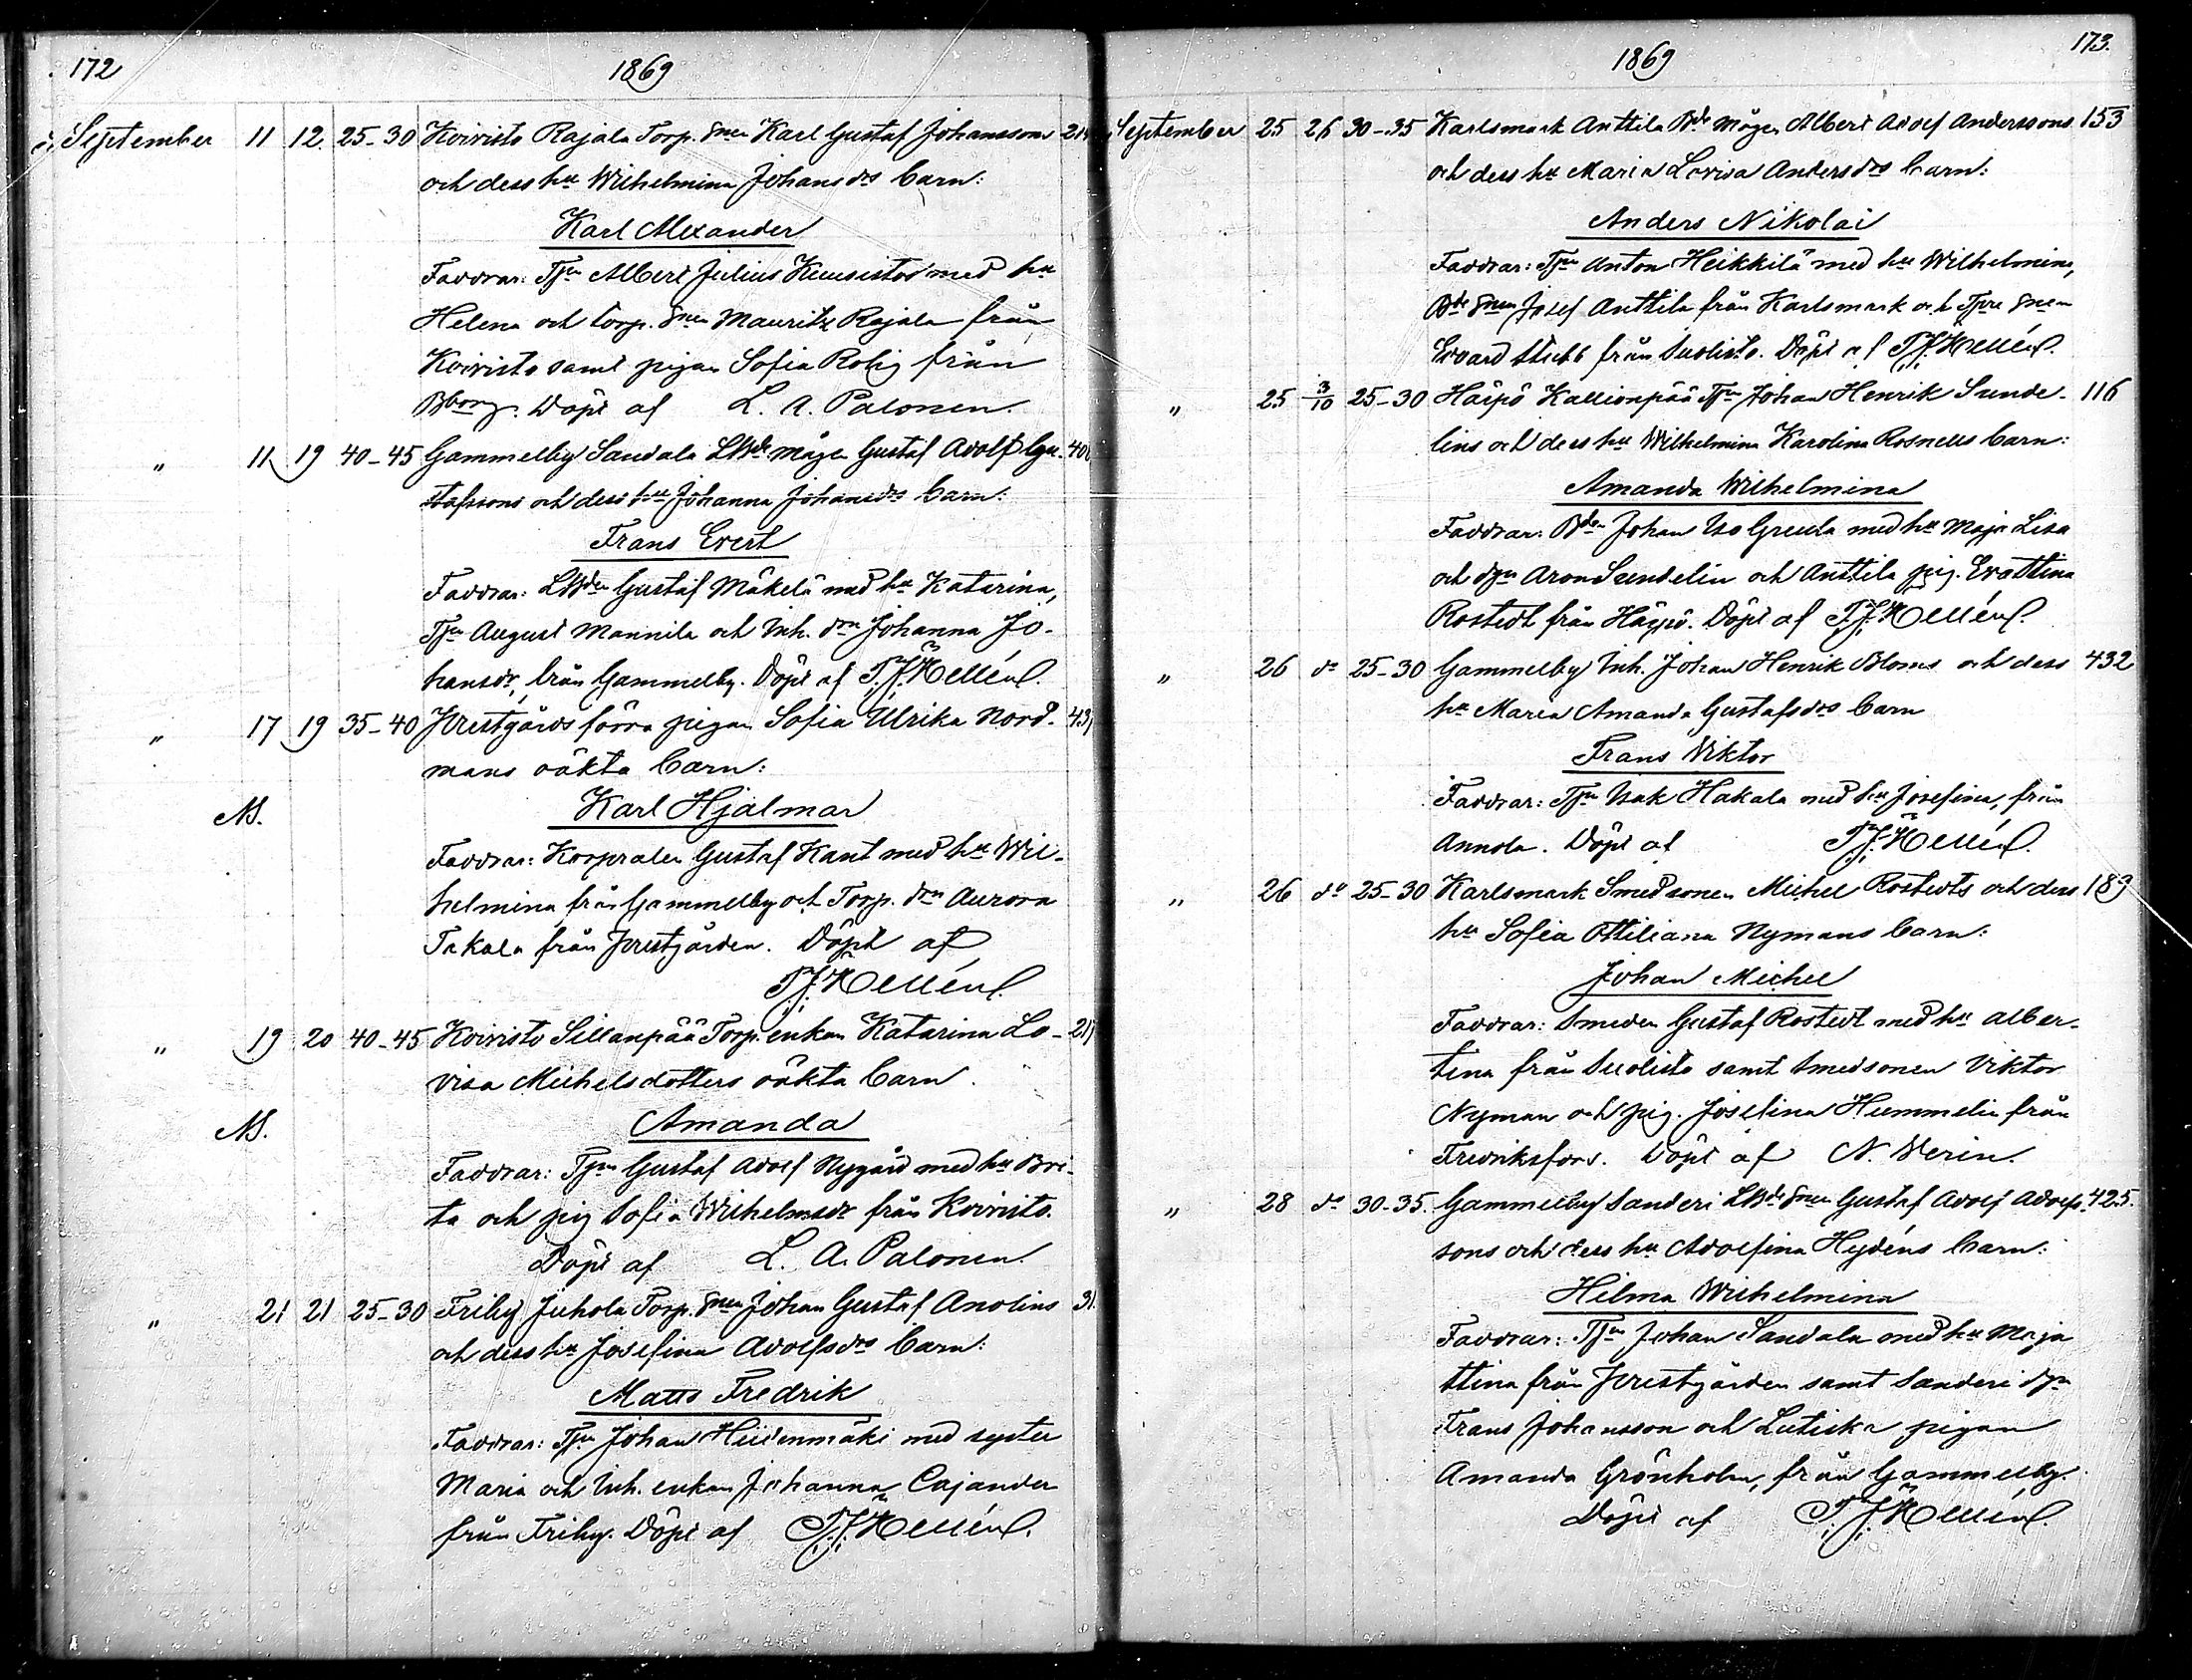 172
1869
September 11 12. 25-30 Koivisto Rajala Torp. Snen Karl Gustaf Johanssons 21
och dess hu Wilhelmina Johansdrs barn:
Karl Alexander
Faddrar: Tjen Albert Julius Kuusistos med hu
Helena och torp. Snen Mauritz Rajala från
Koivisto samt pigan Sofia Rolig från
Bborg. Döpt af L. A. Palonen.
" 11 19 40-45 Gammelby Sandala LBde mågen Gustaf Adolf Gu- 40
stafssons och dess hu Johanna Johansdrs barn:
Frans Evert
Faddrar: LBden Gustaf Mäkelä med hu Katarina,
Tjen August Mannila och Inh. drn Johanna Jo-
hansdr, från Gammelby. Döpt af T.J. Hellén.
" 17 19 35-40 Prestgårds förra pigan Sofia Ulrika Nord- 43
mans oäkta barn:
Karl Hjalmar
NB.
Faddrar: Korpralen Gustaf Kant med hu Wil-
helmina från Gammelby och Torp. drn Aurora
Takala från Prestgården. Döpt af
T.J. Hellén.
" 19 20 40-45 Koivisto Sillanpää Torp. enkan Katarina Lo- 21
visa Michelsdotters oäkta barn.
Amanda
NB.
Faddrar: Tjen Gustaf Adolf Nygård med hu Bri-
ta och pig Sofia Wilhelmsdr från Koivisto.
Döpt af L. A. Palonen.
" 21 21 25-30 Friby Juhola Torp. Snen Johan Gustaf Anolins 31
och dess hu Josefina Adolfsdrs barn:
Matts Fredrik
Faddrar: Tjen Johan Hiidenmäki med syster
Maria och Inh. enkan Johanna Cajander
från Friby. Döpt af T.J. Hellén.
173.
1869
September 25 26 30-35 Karlsmark Anttila Bde mågen Albert Adolf Anderssons 153
och dess hu Maria Lovisa Andersdrs barn:
Anders Nikolai
Faddrar: Tjen Anton Heikkilä med hu Wilhelmina,
Bde Snen Josef Anttila från Karlsmark och Tjre Snen
Edvard Stubb från Suolisto. Döpt af T.J. Hellén.
" 25 3/10 25-30 Häypö Kallionpää Tjen Johan Henrik Sunde- 116
lins och dess hu Wilhelmina Karolina Rosnells barn:
Amanda Wilhelmina
Faddrar: Bden Johan Iso Greula med hu Maja Lisa
och drgn Aron Sundelin och Anttila pig. Eva Stina
Rostedt från Häypö. Döpt af T.J. Hellén.
" 26 do 25-30 Gammelby Inh. Johan Henrik Bloms och dess 432
hu Maria Amanda Gustafsdrs barn
Frans Viktor
Faddrar: Tjen Isak Hakala med hu Josefina, från
Annola. Döpt af T.J. Hellén.
" 26 do 25-30 Karlsmark Smedsonen Michel Rostedts och dess 189
hu Sofia Ottiliana Nymans barn:
Johan Michel
Faddrar: Smeden Gustaf Rostedt med hu Alber-
tina från Suolisto samt Smedsonen Viktor
Nyman och pig. Josefina Hummelin från
Fredriksfors. Döpt af N. Werin.
" 28 do 30-35. Gammelby Sanderi LBde Snen Gustaf Adolf Adolfs- 425.
sons och dess hu Adolfina Hydéns barn:
Hilma Wilhelmina
Faddrar: Tjen Johan Sandala med hu Maja
Stina från Prestgården samt Sanderi drgn
Frans Johansson och Lutiska pigan
Amanda Grönholm, från Gammelby.
Döpt af T.J. Hellén.